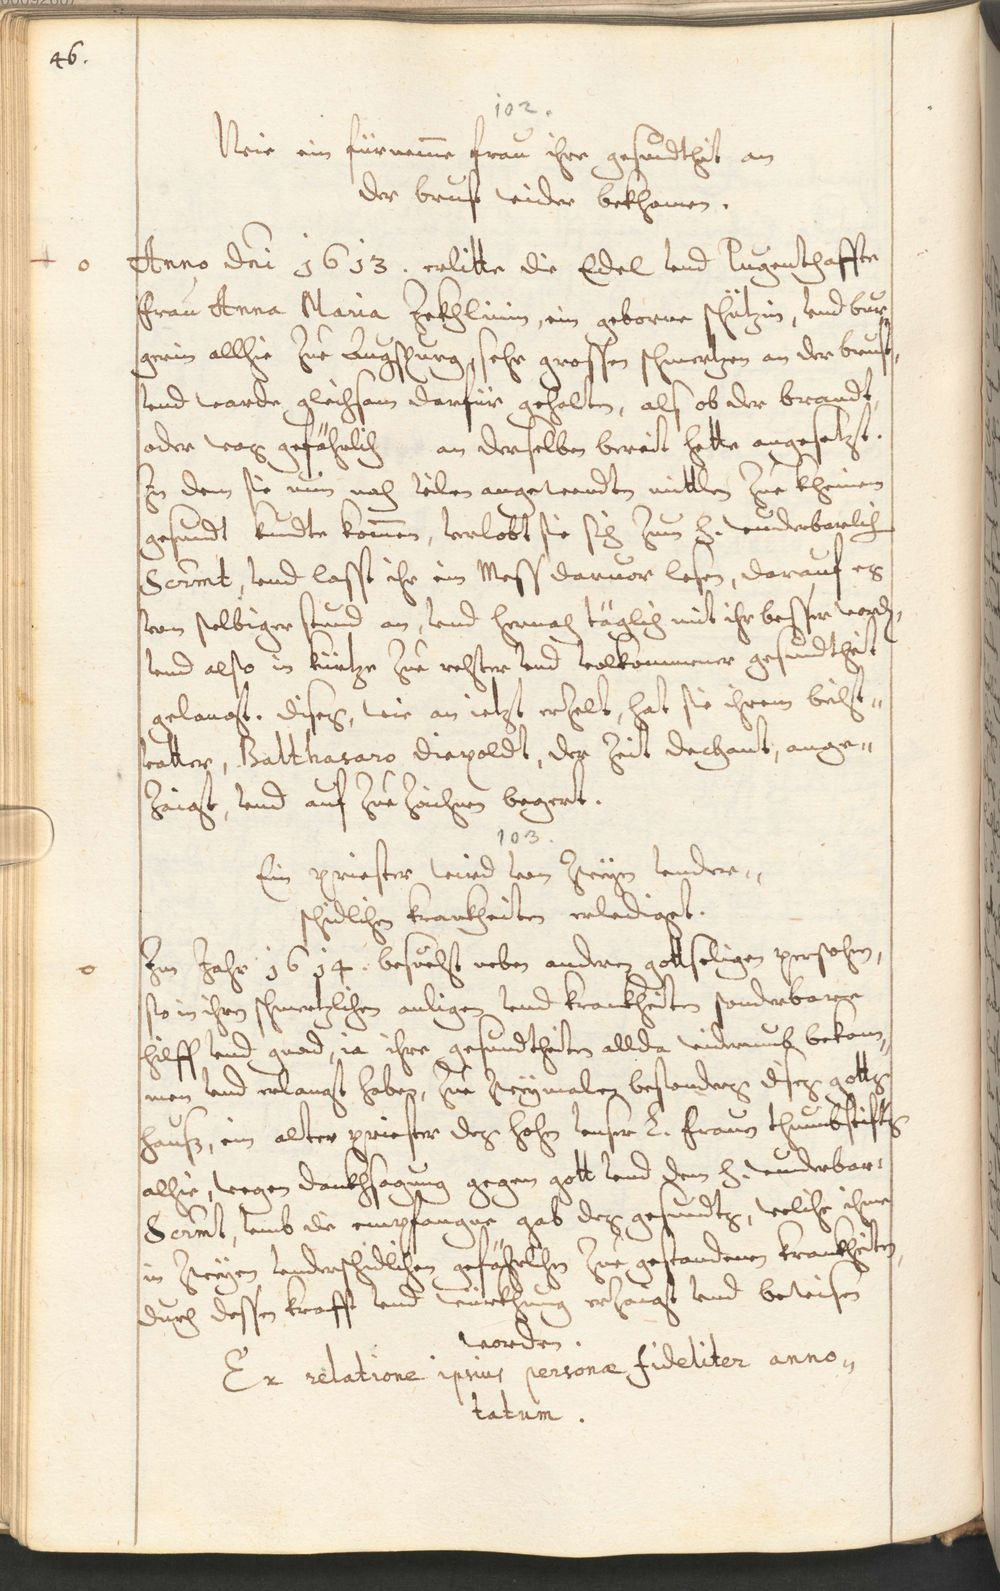 46.
102.
Wie ein fürneme Frau ihre gesundtheit an
der brust wider bekhomen.
Anno dni 1613. erlitte die Edel vnd Tugenthaffte
Frau Anna Maria Zekhlinin, ein geborne schützin, vnd bur„
gerin allhie zue Augspurg, sehr grossen schmertzen an der brust,
vnd warde gleichsam darfür gehalten, als ob der brandt,
oder was gefährlich an derselben bereit hette angesetzt.
In dem sie nun nach vilen angewendten mittlen zue kheinem
gesundt kundte komen, verlobt sie sich zum h. wunderbarlich
Scrmt, vnd lasst ihr ein Mess daruor lesen, darauf es
von selbiger stund an, vnd hernach täglich mit ihr besser worde,
vnd also in kürtze zue rechter vnd volkommener gesundtheit
gelangt. Dises, wie an ietzt erzelt, hat sie ihrem beicht„
vatter, Balthasaro Diepoldt, der Zeit Dechant, ange„
zaigt, vnd auf zue zaichnen begert.
103.
Ein priester wird von zweyen vnder„
schidlichen krankheiten erlediget.
Im Jahr 1614. besuecht neben anderen gottseligen persohnen,
so in ihren schmertzlichen anligen vnd krankheiten sonderbare
hilff vnd gnad, ia ihre gesundtheiten allda widerumb bekom„
men vnd erlangt haben, zue zweymalen besonders dises gotts
haus, ein alter priester des hohen vnser L. Frauen thumbstiffts
alhie, wegen dankhsagung gegen gott vnd dem h. wunderbar:
Scrmt, vmb die empfangne gab des gesundts, welche ihme
in zweyen vnderschidlichen gefährlichen zue gestandenen krankheiten,
durch dessen krafft vnd würkhung erzaigt vnd bewisen
worden.
Ex relatione ipsius personæ fideliter anno„
tatum.